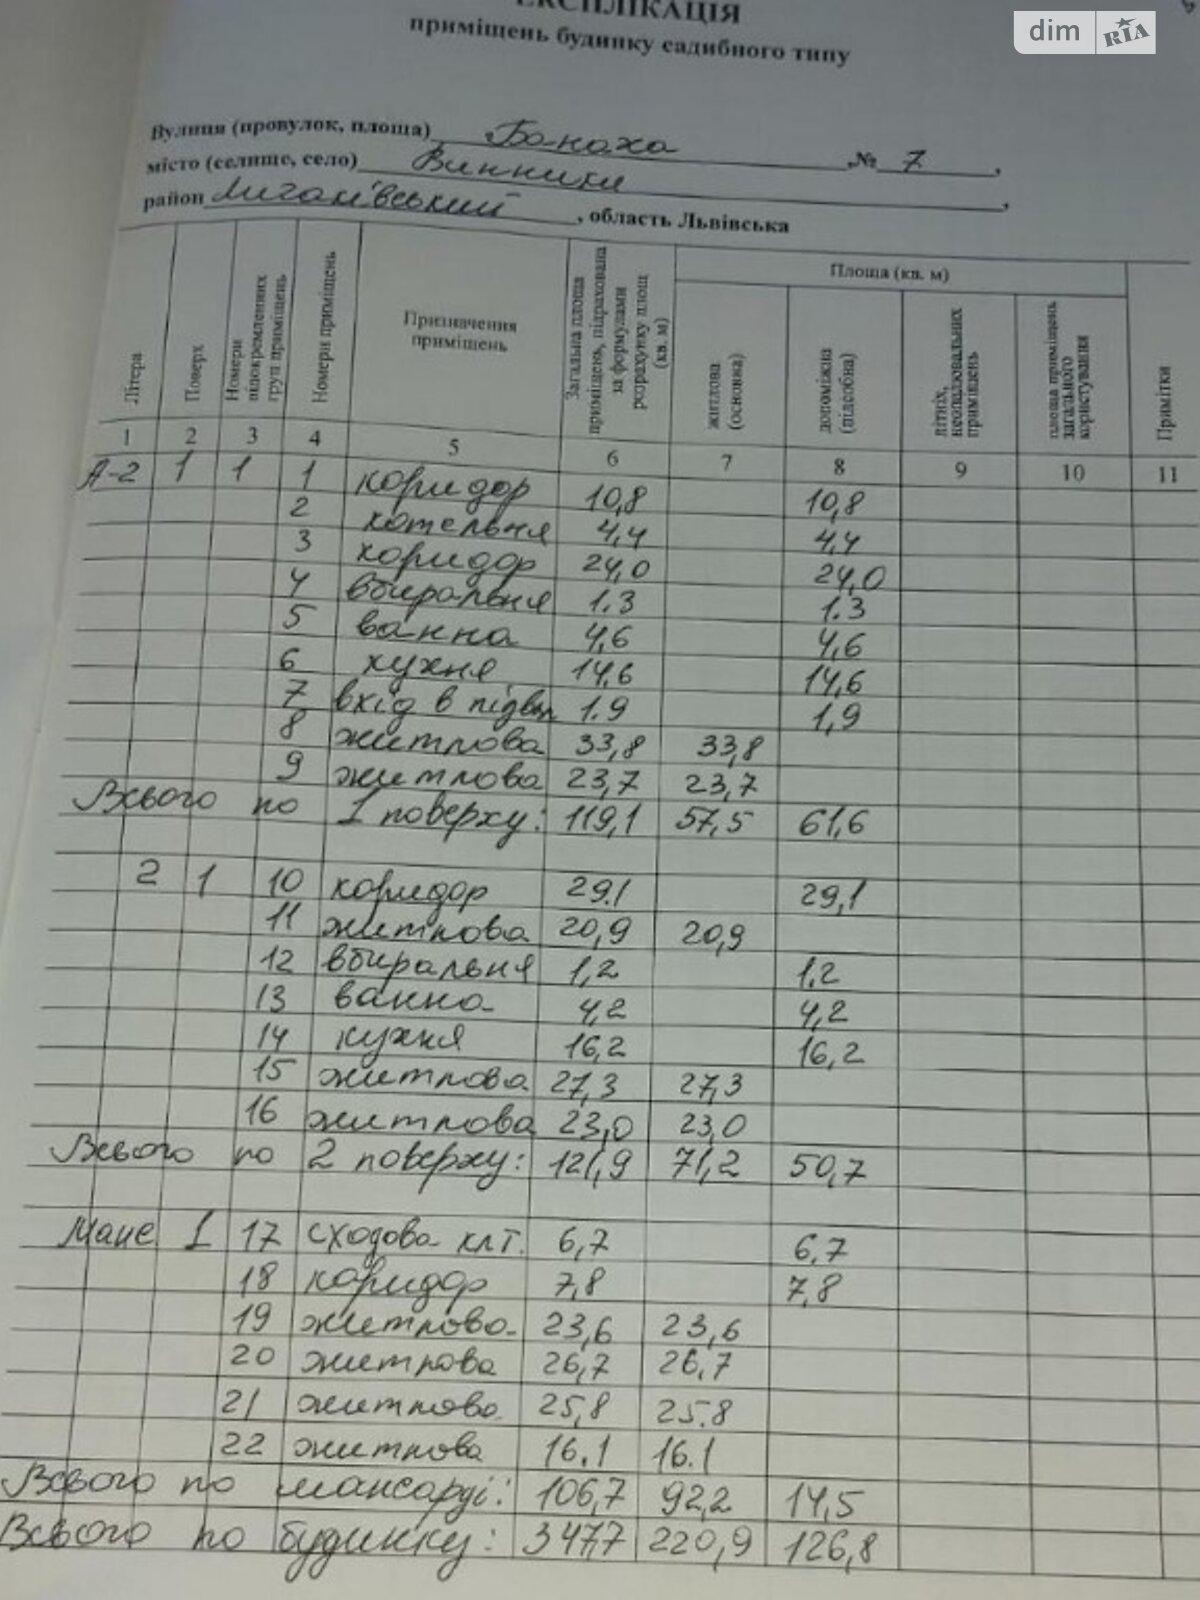 ЕКСПЛІКАЦІЯ
dim RIA
приміщень будинку садибного типу
Вулиця (провулок, площа) Банаха, № 7,
місто (селище, село) Винники,
район Личаківський, область Львівська
Літера Поверх Номери відокремлених груп приміщень Номери приміщень Призначення приміщень Загальна площа приміщень, підрахована за формулами розрахунку площ (кв. м) Площа (кв. м) житлова (основна) допоміжна (підсобна) літніх, неопалювальних приміщень площа приміщень загального користування Примітки
1 2 3 4 5 6 7 8 9 10 11
А-2 1 1 1 коридор 10,8 10,8
2 котельня 4,4 4,4
3 коридор 24,0 24,0
4 вбиральня 1.3 1.3
5 ванна 4,6 4,6
6 кухня 14,6 14,6
7 вхід в підвал 1.9 1,9
8 житлова 33,8 33,8
9 житлова 23,7 23,7
Всього по 1 поверху: 119,1 57,5 61,6
2 1 10 коридор 29.1 29,1
11 житлова 20,9 20,9
12 вбиральня 1,2 1.2
13 ванна 4,2 4,2
14 кухня 16,2 16,2
15 житлова 27,3 27,3
16 житлова 23,0 23,0
Всього по 2 поверху: 121,9 71,2 50,7
Манс 1 17 сходова клт. 6,7 6,7
18 коридор 7,8 7,8
19 житлова 23,6 23,6
20 житлова 26,7 26,7
21 житлова 25,8 25.8
22 житлова 16.1 16.1
Всього по мансарді: 106,7 92,2 14,5
Всього по будинку: 347,7 220,9 126,8